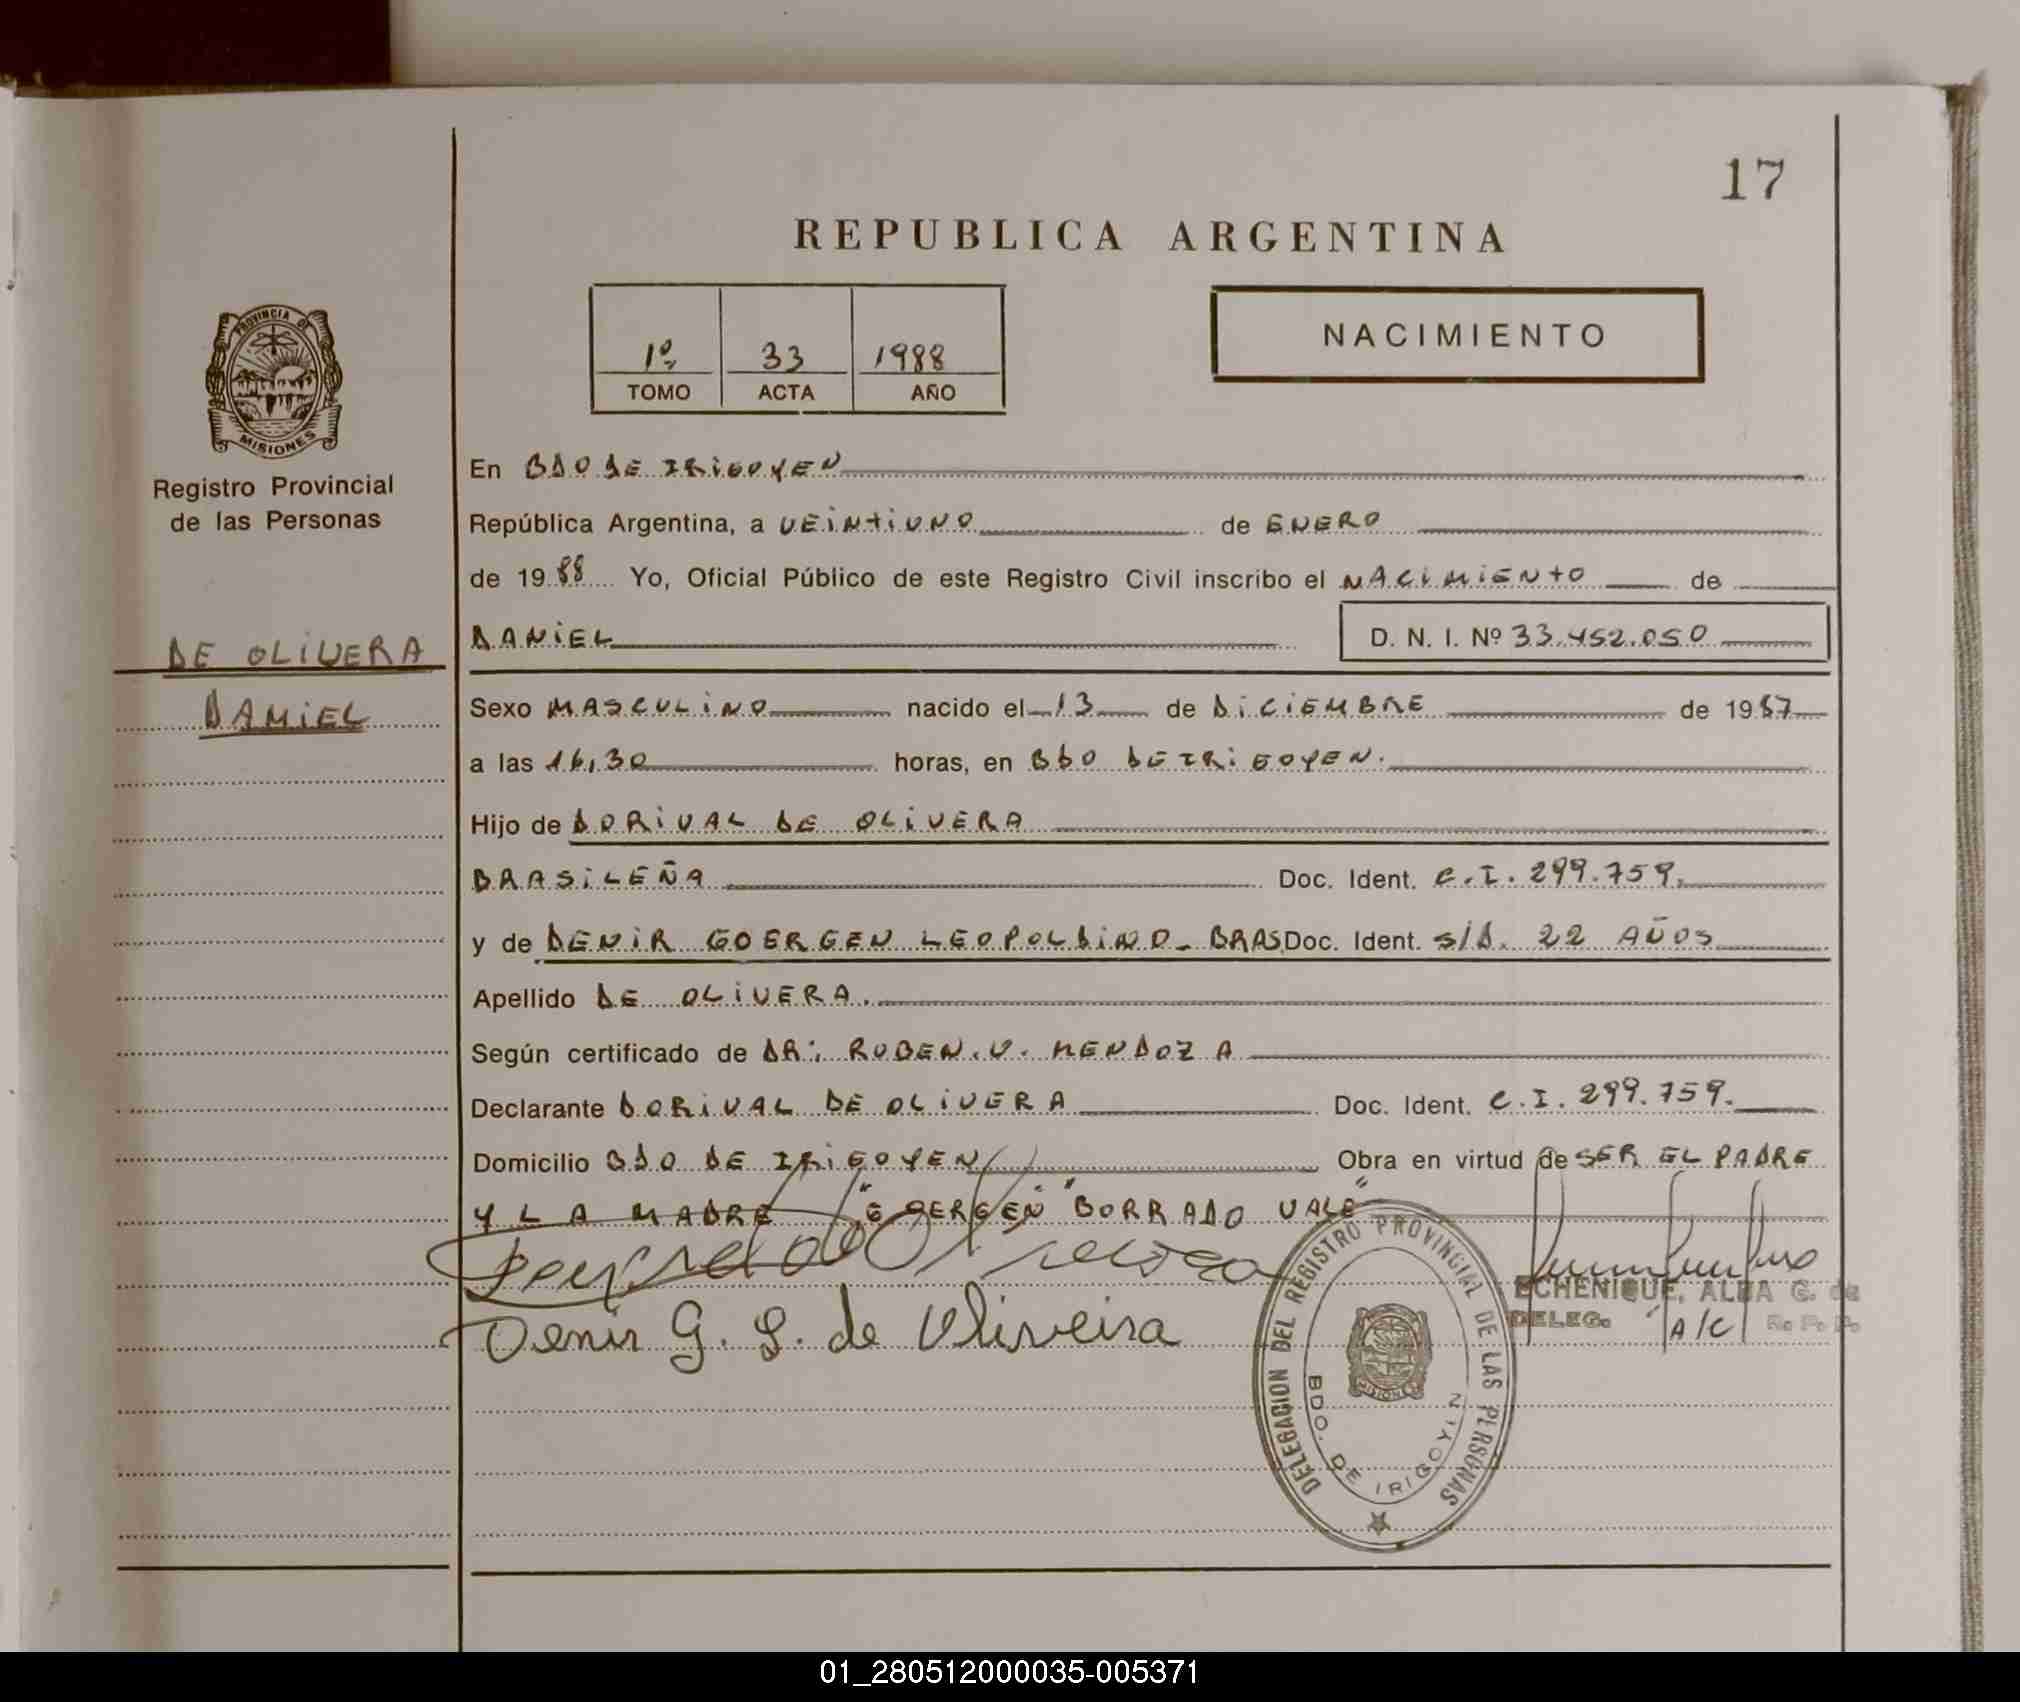 17
REPUBLICA ARGENTINA
1º
33
1988
TOMO ACTA AÑO
NACIMIENTO
PROVINCIA DE
MISIONES
Registro Provincial
de las Personas
DE OLIVERA
DANIEL
En BDO DE IRIGOYEN
República Argentina, a VEINTIUNO de ENERO
de 1988 Yo, Oficial Público de este Registro Civil inscribo el NACIMIENTO de
DANIEL D. N. I. Nº 33.452.050
Sexo MASCULINO nacido el 13 de DICIEMBRE de 1987
a las 16,30 horas, en BDO DE IRIGOYEN.
Hijo de DORIVAL DE OLIVERA
BRASILEÑA Doc. Ident. C.I. 299.759.
y de DENIR GOERGEN LEOPOLDINO - BRAS Doc. Ident. S/D. 22 AÑOS
Apellido DE OLIVERA.
Según certificado de DR: RUBEN.V. MENDOZA
Declarante DORIVAL DE OLIVERA Doc. Ident. C.I. 299.759.
Domicilio BDO DE IRIGOYEN Obra en virtud de SER EL PADRE
Y LA MADRE "GOERGEN" "BORRADO VALE"
Denir G. L. de Oliveira
DELEGACION DEL REGISTRO PROVINCIAL DE LAS PERSONAS
MISIONES
BDO. DE IRIGOYIN
ECHENIQUE, ALBA G. de
DELEG. A/C R. P. P.
01_280512000035-005371